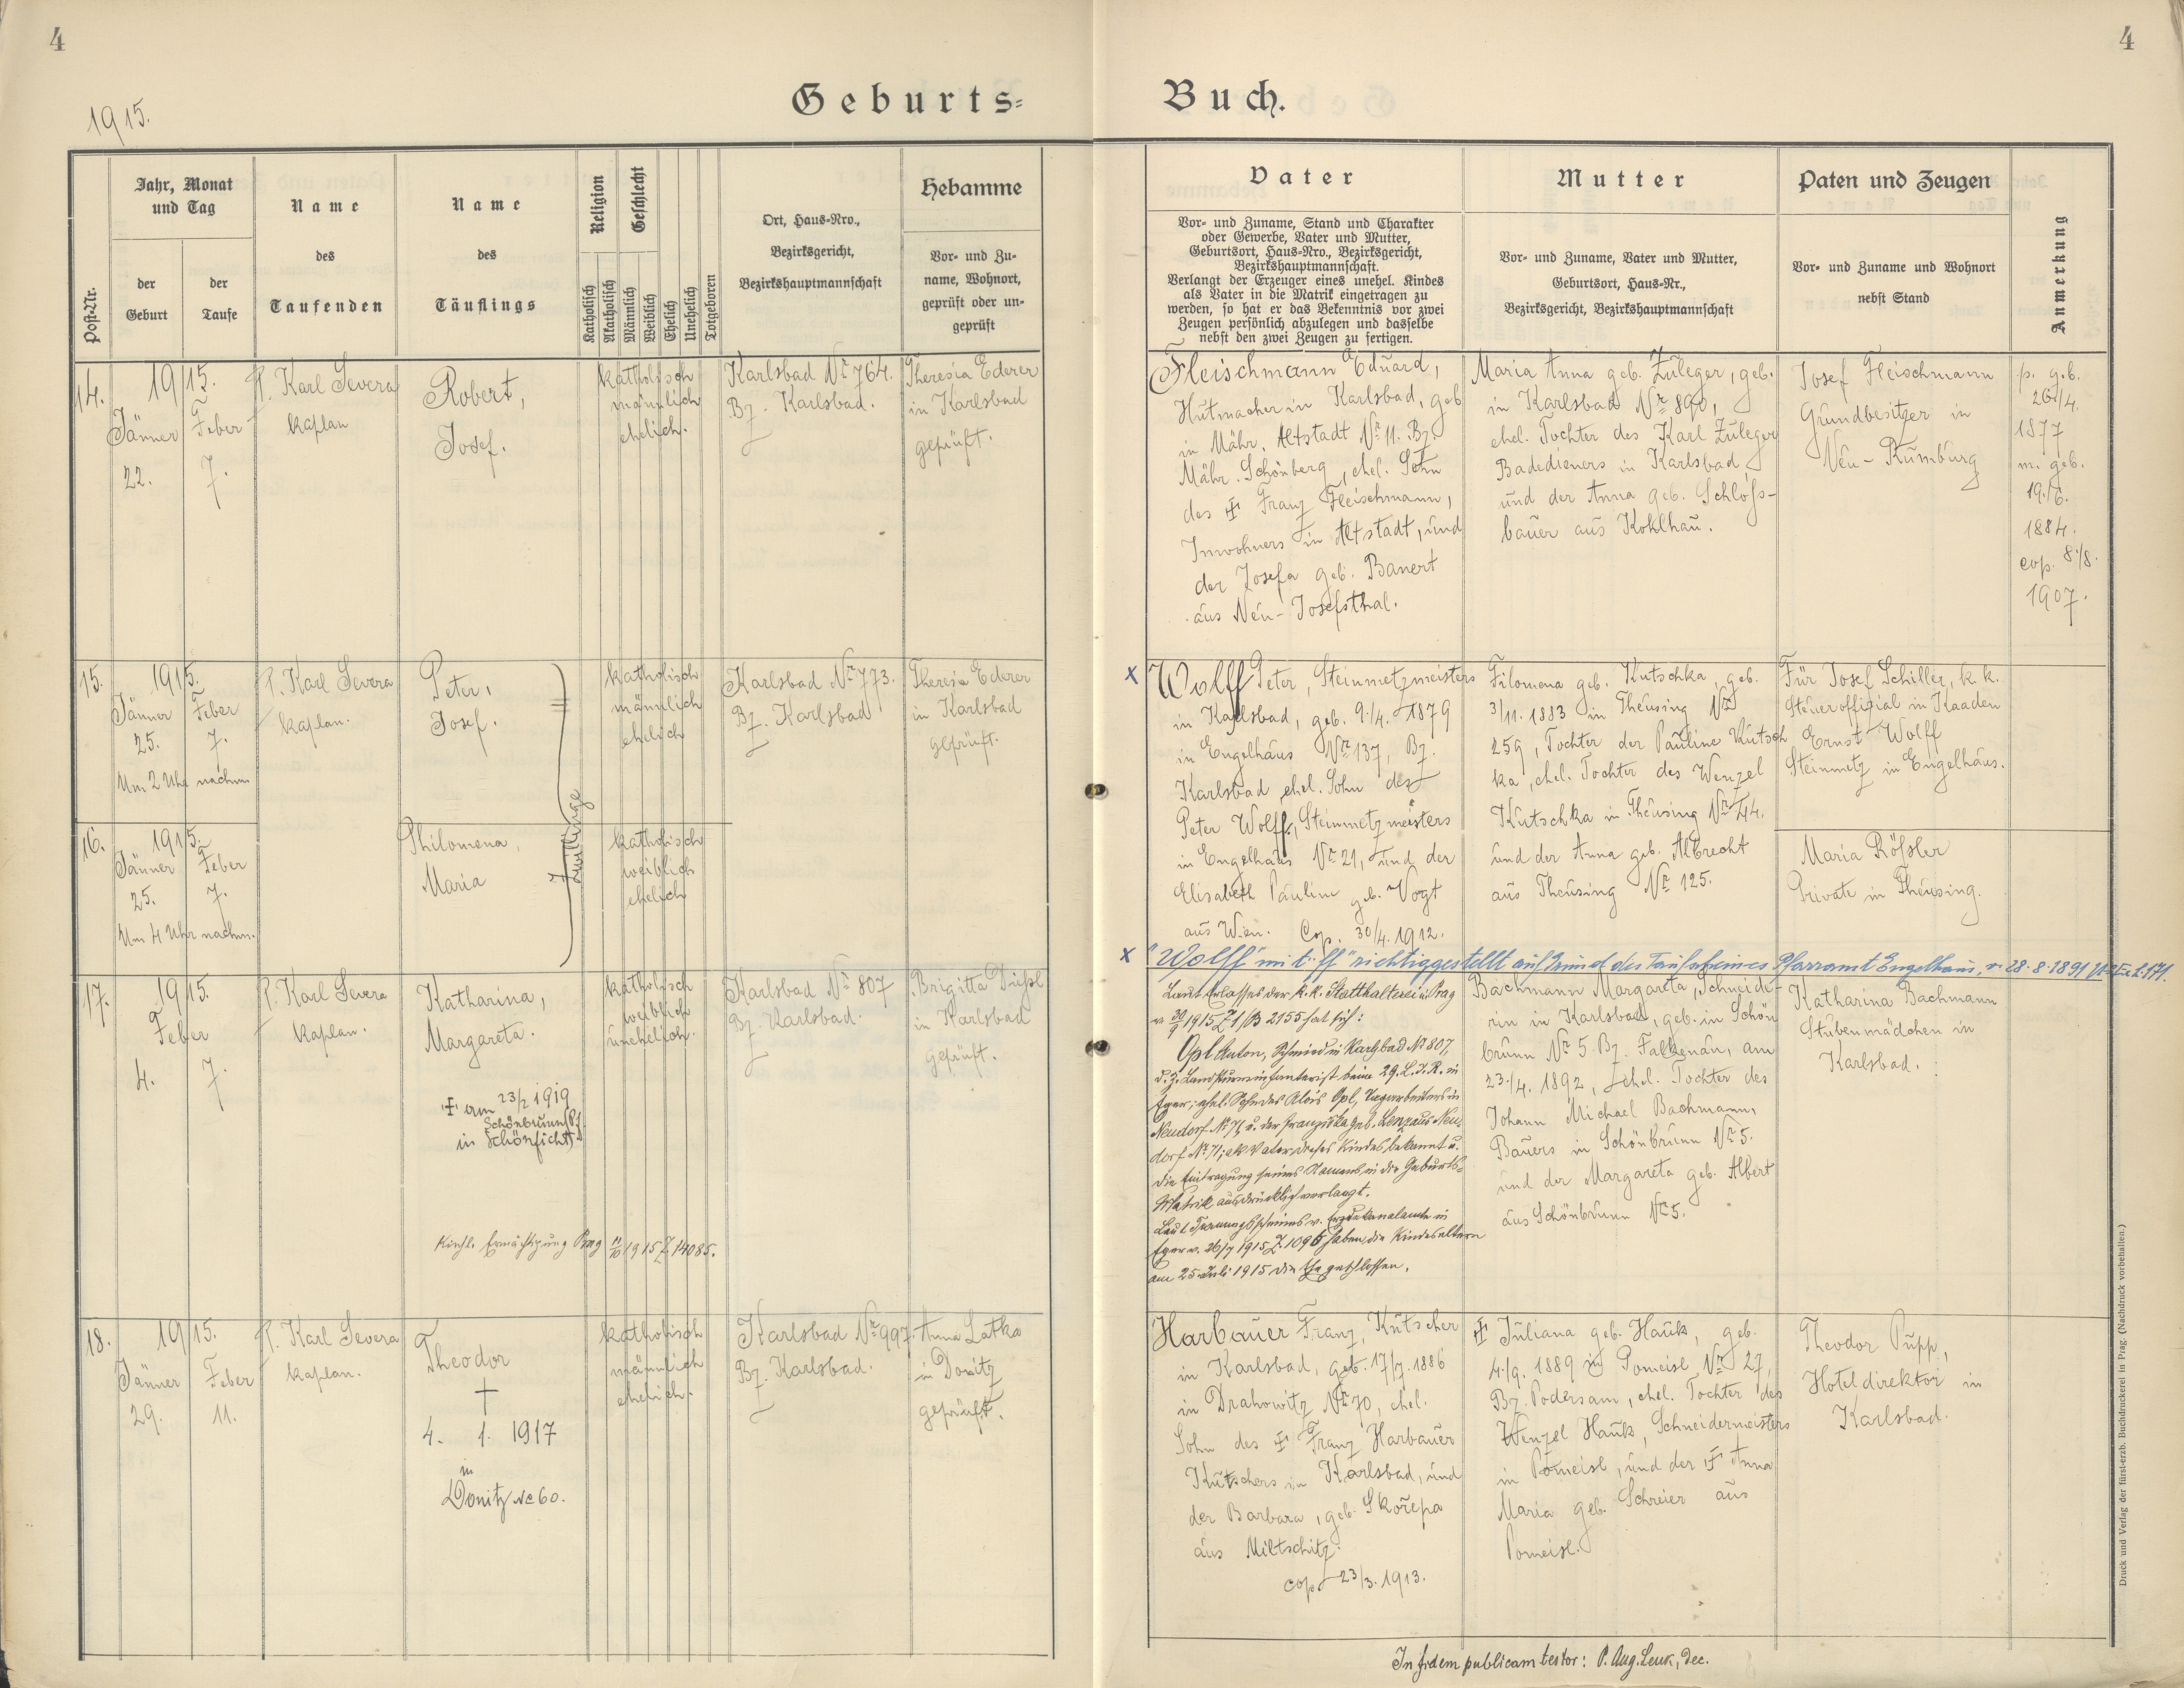 4
4
Geburts=
Buch.
1915.
Post-Nr.
Jahr, Monat
und Tag
der
Geburt
der
Taufe
Name
des
Taufenden
Name
des
Täuflings
Religion
Katholisch
Akatholisch
Geschlecht
Männlich
Weiblich
Ehelich
Unehelich
Totgeboren
Ort, Haus-Nro.,
Bezirksgericht,
Bezirkshauptmannschaft
Hebamme
Vor- und Zu-
name, Wohnort,
geprüft oder un-
geprüft
Vater
Vor- und Zuname, Stand und Charakter
oder Gewerbe, Vater und Mutter,
Geburtsort, Haus-Nro., Bezirksgericht,
Bezirkshauptmannschaft.
Verlangt der Erzeuger eines unehel. Kindes
als Vater in die Matrik eingetragen zu
werden, so hat er das Bekenntnis vor zwei
Zeugen persönlich abzulegen und dasselbe
nebst den zwei Zeugen zu fertigen.
Mutter
Vor- und Zuname, Vater und Mutter,
Geburtsort, Haus-Nr.,
Bezirksgericht, Bezirkshauptmannschaft
Paten und Zeugen
Vor- und Zuname und Wohnort
nebst Stand
Anmerkung
14.
1915.
Jänner
22.
Feber
7.
P. Karl Severa
Kaplan
Robert,
Josef.
katholisch
männlich
ehelich.
Karlsbad Nr 764.
Bz. Karlsbad.
Theresia Ederer
in Karlsbad
geprüft.
Fleischmann Eduard,
Hutmacher in Karlsbad, geb
in Mähr. Altstadt Nr 11. Bz.
Mähr. Schönberg, ehel. Sohn
des Franz Fleischmann,
Inwohners in Altstadt, und
der Josefa geb. Banert
aus Neu-Josefsthal.
Maria Anna geb. Zuleger, geb.
in Karlsbad Nr 890,
ehel. Tochter des Karl Zuleger
Badedieners in Karlsbad
und der Anna geb. Schloss-
bauer aus Kohlhau.
Josef Fleischmann
Grundbesitzer in
Neu-Rumburg
p. geb.
26/4.
1877
m. geb.
19./6.
1884.
cop. 8./8.
1907.
15.
1915.
Jänner
25.
Feber
7.
Um 2 Uhr nachm
P. Karl Severa
Kaplan.
Peter,
Josef.
Zwillinge
katholisch
männlich
ehelich
Karlsbad Nr 773.
Bz. Karlsbad
Theresia Ederer
in Karlsbad
geprüft.
x Wolff Peter, Steinmetzmeisters
in Karlsbad, geb. 9./4. 1879
in Engelhaus Nr 137, Bz.
Karlsbad, ehel. Sohn des
Peter Wolff, Steinmetzmeisters
in Engelhaus Nr 21, und der
Elisabeth Pauline geb. Vogt
aus Wien. Cop. 30/4. 1912.
Filomena geb. Kutschka, geb.
3/11. 1883 in Theusing Nr
259, Tochter der Pauline Kutsch
ka, ehel. Tochter des Wenzel
Kutschka in Theusing Nr 44.
und der Anna geb. Albrecht
aus Theusing Nr 125.
Für Josef Schiller, k. k.
Steueroffizial in Kaaden
Ernst Wolff
Steinmetz in Engelhaus.
16.
1915.
Jänner
25.
Feber
7.
Um 4 Uhr nachm.
Philomena,
Maria
katholisch
weiblich
ehelich
Maria Rössler
Private in Theusing.
x "Wolff" mit "ff" richtiggestellt auf Grund des Taufscheines Pfarramt Engelhaus, v. 28.8.1891
17.
1915.
Feber
4.
7.
P. Karl Severa
Kaplan.
Katharina,
Margareta.
am 23/2 1919
Schönbrunn
in Schönficht
Kirchl. Ermächtigung Prag 11/10 1915 Z. 14085.
katholisch
weiblich
unehelich.
Karlsbad Nr 807
Bz. Karlsbad.
Brigitta
in Karlsbad
geprüft.
Laut Erlasses der k. k. Statthalterei in Prag
v 30/9 1915 Z 1/B 2155 hat sich:
Opl Anton, Schmied in Karlsbad Nr 807,
d. Z. Landsturminfanterist beim 29. L.I.R. in
Eger; ehel. Sohn des Alois Opl, Tagarbeiters in
Neudorf Nr 71, u. der Franziska geb. Lenz aus Neu-
dorf Nr 71; als Vater dieses Kindes bekannt u.
die Eintragung seines Namens in die Geburts-
Matrik ausdrücklich verlangt.
Laut Trauungsscheines v. Erzdekanalamte in
Eger v. 26/7 1915 Z. 1096 haben die Kindeseltern
am 25 Juli 1915 die Ehe geschlossen.
Bachmann Margareta, Schneide-
rin in Karlsbad, geb. in Schön
brunn Nr 5. Bz. Falkenau, am
23./4. 1892, ehel. Tochter des
Johann Michael Bachmann,
Bauers in Schönbrunn Nr 5.
und der Margareta geb. Albert
aus Schönbrunn Nr 5.
Katharina Bachmann
Stubenmädchen in
Karlsbad.
18.
1915.
Jänner
29.
Feber
11.
P. Karl Severa
Kaplan.
Theodor
†
4. 1. 1917
in
Donitz No 60.
katholisch
männlich
ehelich.
Karlsbad Nr 997
Bz. Karlsbad.
Anna Latka
in Donitz
geprüft.
Harbauer Franz, Kutscher
in Karlsbad, geb. 17/7. 1886
in Drahowitz Nr 70, ehel.
Sohn des Franz Harbauer
Kutschers in Karlsbad, und
der Barbara, geb. Skořepa
aus Miltschitz.
cop. 23/3. 1913.
Juliana geb. Hauk, geb.
4./9. 1889 in Pomeisl Nr 27,
Bz. Podersam, ehel. Tochter des
Wenzel Hauk, Schneidermeisters
in Pomeisl, und der Anna
Maria geb. Schreier aus
Pomeisl.
Theodor Pupp,
Hoteldirektor in
Karlsbad.
In fidem publicam testor: P. Aug. Leuk, Dec.
Druck und Verlag der fürst-erzb. Buchdruckerei in Prag. (Nachdruck vorbehalten.)